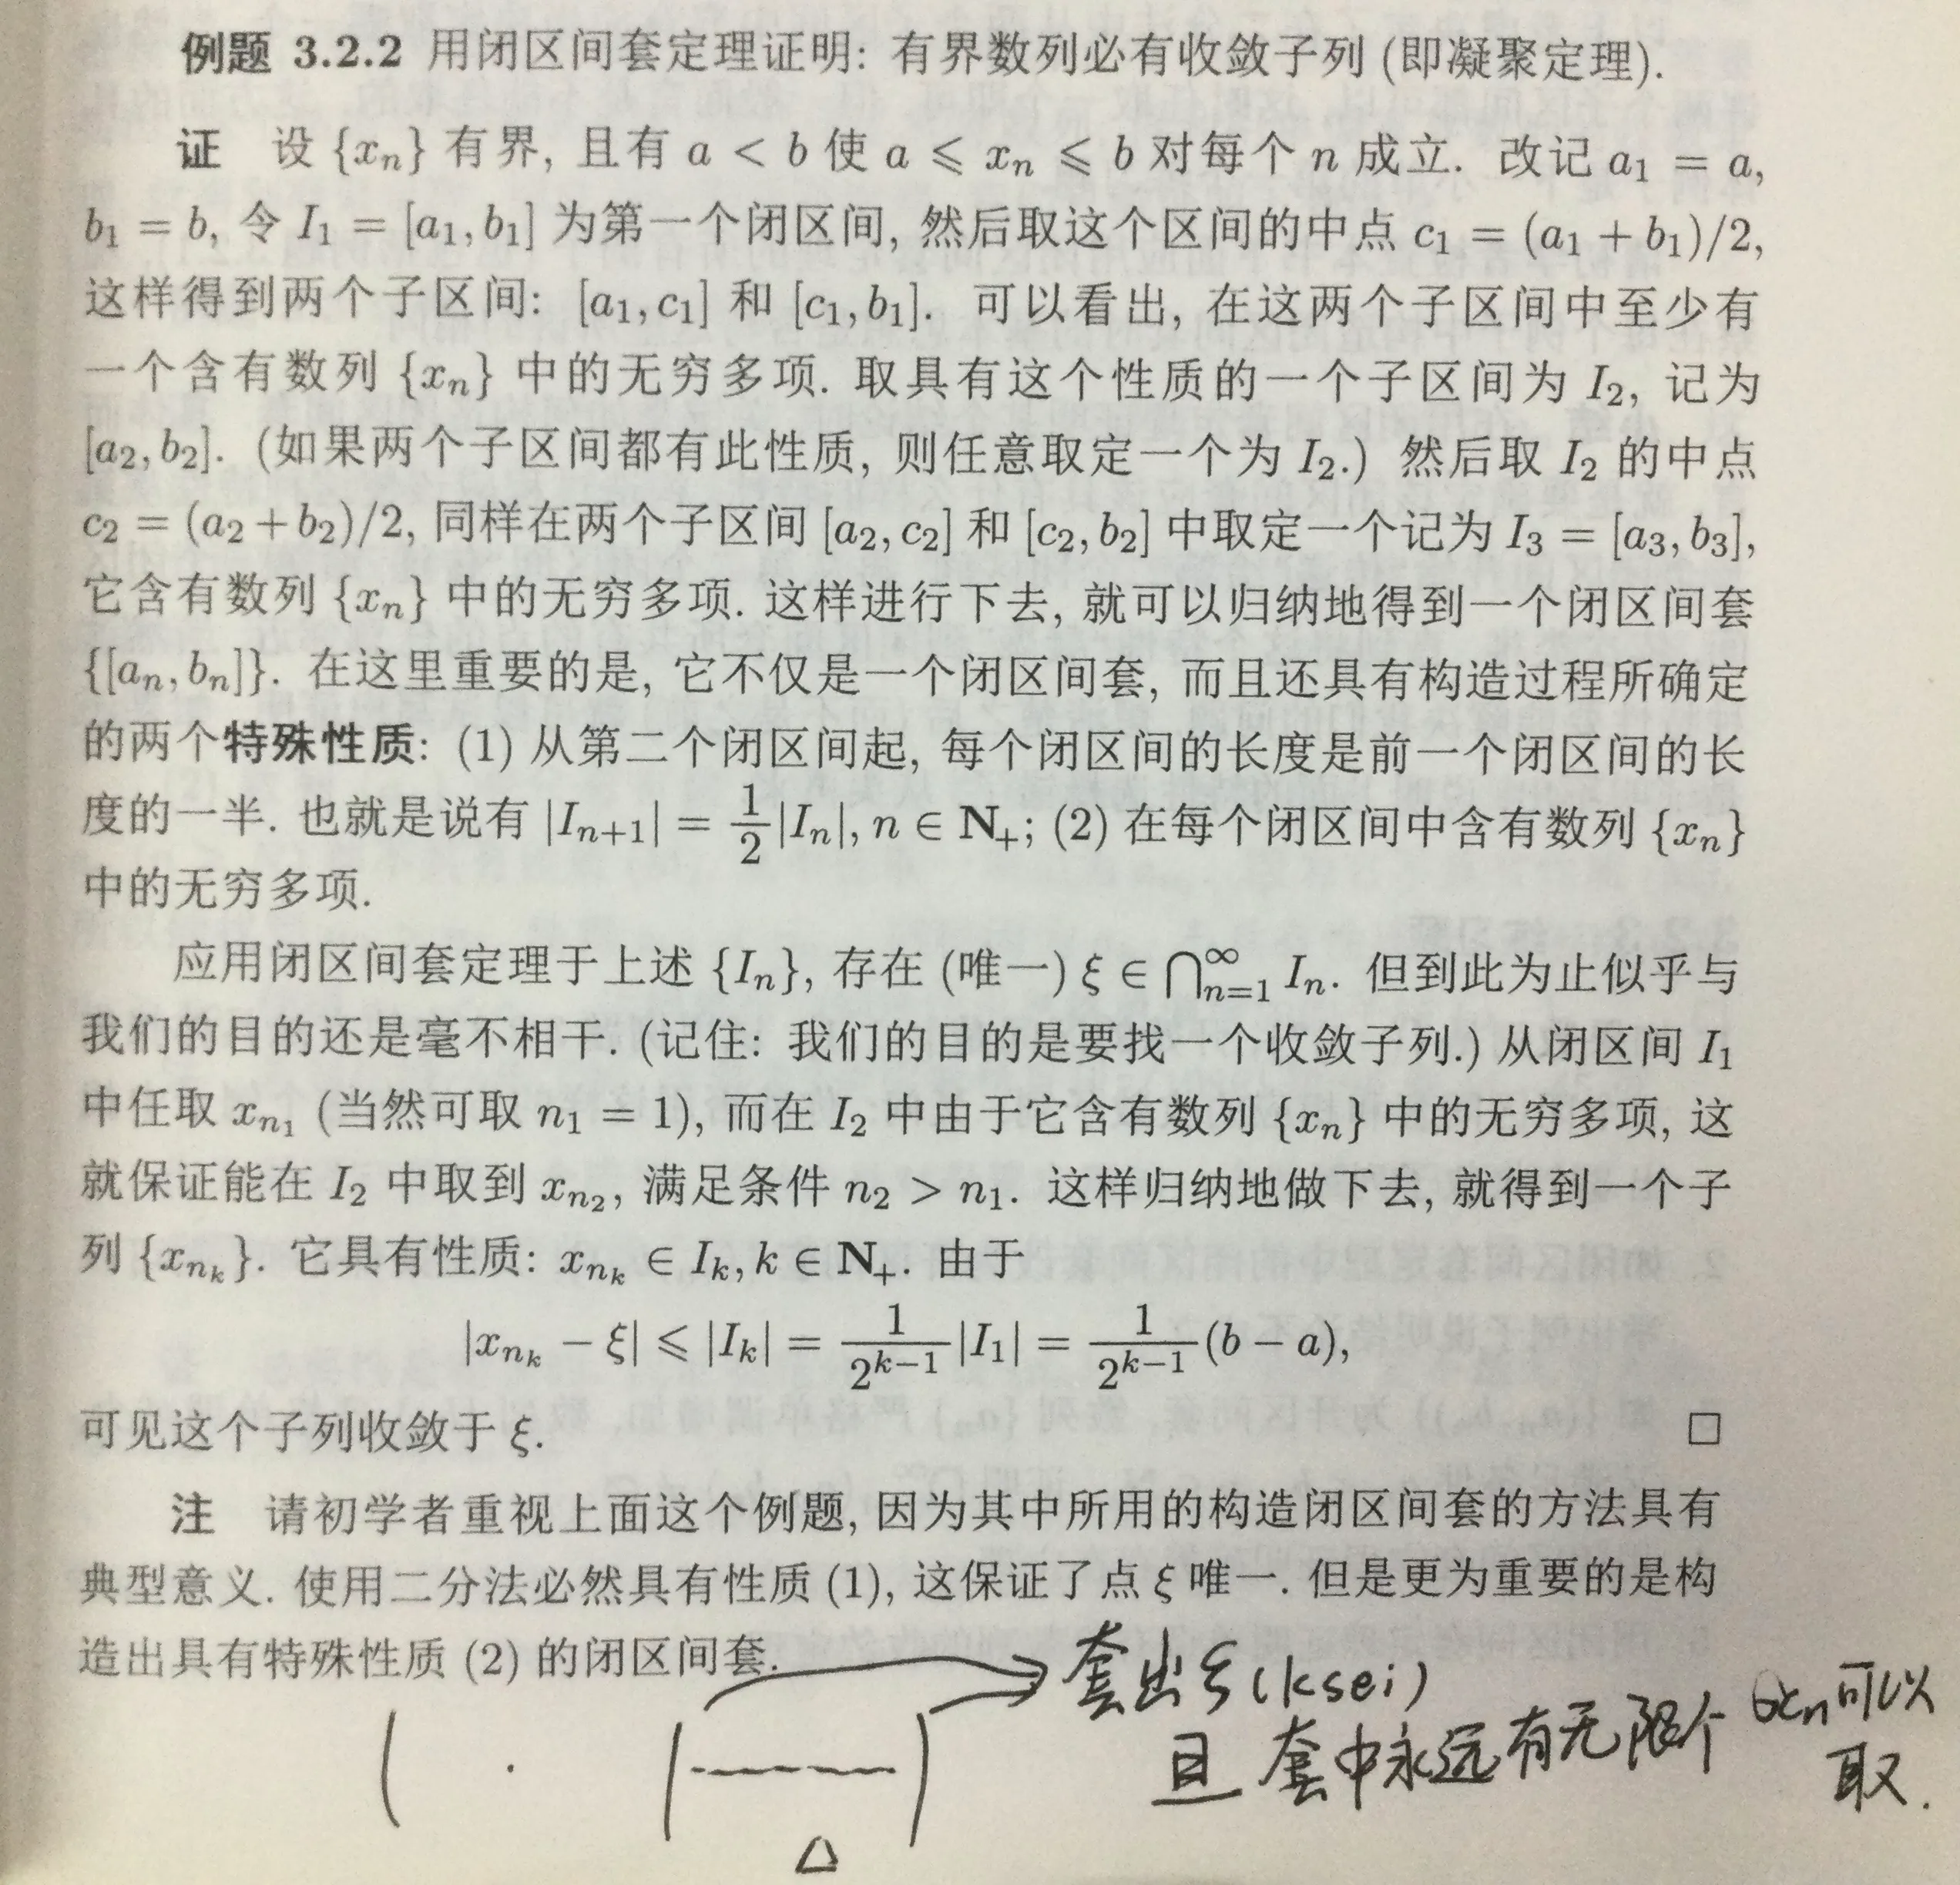 例题 3.2.2 用闭区间套定理证明: 有界数列必有收敛子列 (即凝聚定理).
证 设 {xₙ} 有界, 且有 a < b 使 a ⩽ xₙ ⩽ b 对每个 n 成立. 改记 a₁ = a,
b₁ = b, 令 I₁ = [a₁, b₁] 为第一个闭区间, 然后取这个区间的中点 c₁ = (a₁ + b₁)/2,
这样得到两个子区间: [a₁, c₁] 和 [c₁, b₁]. 可以看出, 在这两个子区间中至少有
一个含有数列 {xₙ} 中的无穷多项. 取具有这个性质的一个子区间为 I₂, 记为
[a₂, b₂]. (如果两个子区间都有此性质, 则任意取定一个为 I₂.) 然后取 I₂ 的中点
c₂ = (a₂ + b₂)/2, 同样在两个子区间 [a₂, c₂] 和 [c₂, b₂] 中取定一个记为 I₃ = [a₃, b₃],
它含有数列 {xₙ} 中的无穷多项. 这样进行下去, 就可以归纳地得到一个闭区间套
{[aₙ, bₙ]}. 在这里重要的是, 它不仅是一个闭区间套, 而且还具有构造过程所确定
的两个特殊性质: (1) 从第二个闭区间起, 每个闭区间的长度是前一个闭区间的长
度的一半. 也就是说有 |Iₙ₊₁| = 1/2 |Iₙ|, n ∈ N₊; (2) 在每个闭区间中含有数列 {xₙ}
中的无穷多项.
应用闭区间套定理于上述 {Iₙ}, 存在 (唯一) ξ ∈ ⋂_{n=1}^∞ Iₙ. 但到此为止似乎与
我们的目的还是毫不相干. (记住: 我们的目的是要找一个收敛子列.) 从闭区间 I₁
中任取 x_{n₁} (当然可取 n₁ = 1), 而在 I₂ 中由于它含有数列 {xₙ} 中的无穷多项, 这
就保证能在 I₂ 中取到 x_{n₂}, 满足条件 n₂ > n₁. 这样归纳地做下去, 就得到一个子
列 {x_{n_k}}. 它具有性质: x_{n_k} ∈ I_k, k ∈ N₊. 由于
|x_{n_k} − ξ| ⩽ |I_k| = 1/2^{k−1} |I₁| = 1/2^{k−1} (b − a),
可见这个子列收敛于 ξ. □
注 请初学者重视上面这个例题, 因为其中所用的构造闭区间套的方法具有
典型意义. 使用二分法必然具有性质 (1), 这保证了点 ξ 唯一. 但是更为重要的是构
造出具有特殊性质 (2) 的闭区间套.
套出 ξ (ksei)
且 套中永远有无限个 xₙ可以
取.